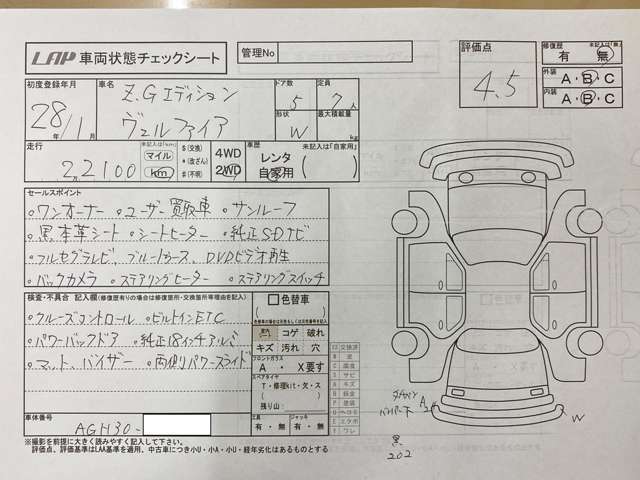 LAP 車両状態チェックシート
管理No
評価点
4.5
修復歴
未記入は「無」
有 無
外装 A・B・C
内装 A・B・C
初度登録年月
28年/1月
車名
Z.Gエディション
ヴェルファイア
ドア数
5
定員
7人
形状
W
最大積載量
kg
走行
22100
未記入は「km」
マイル
km
$(交換)
*(改ざん)
#(不明)
4WD
2WD
車歴
未記入は「自家用」
レンタ
自家用
セールスポイント
・ワンオーナー ・ユーザー買取車 ・サンルーフ
・黒本革シート ・シートヒーター ・純正SDナビ
・フルセグテレビ、ブルートゥース、DVDビデオ再生
・バックカメラ ・ステアリングヒーター ・ステアリングスイッチ
検査・不具合 記入欄(修復歴有りの場合は修復箇所・交換箇所等理由を記入)
・クルーズコントロール ・ビルトインETC
・パワーバックドア ・純正18インチアルミ
・マット、バイザー ・両側パワースライド
色替車
コゲ 破れ
キズ 汚れ 穴
フロントガラス
A ・ X要す
スペアタイヤ
T・修理kit・欠・ス
残り山:
工具
有・無
ジャッキ
有・無
車体番号
AGH30-
A
W
黒
202
※撮影を前提に大きく読みやすく記入して下さい。
評価点、評価基準はLAA基準を適用、中古車につき小U・小A・小U・経年劣化はあるものとする